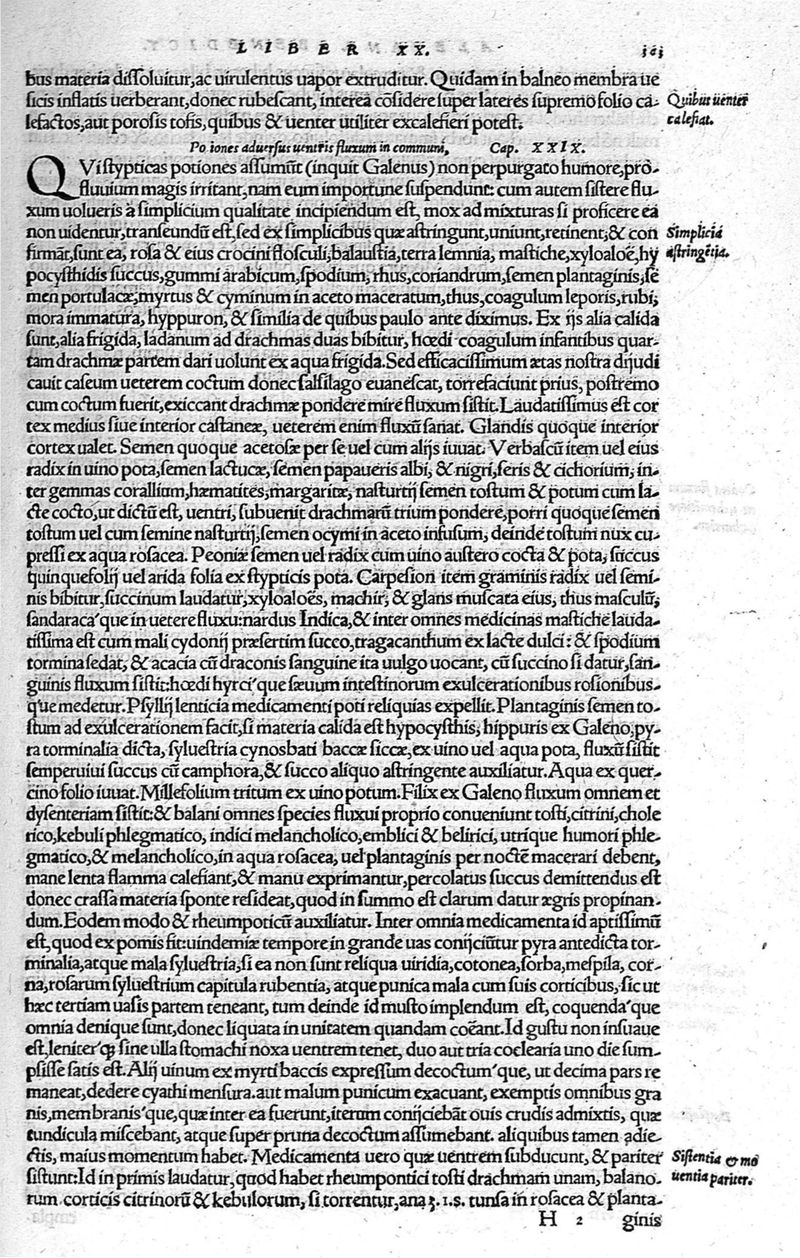 LIBER XX.
bus materia dissoluitur, ac uirulentus uapor extruditur. Quidam in balneo membra ue
sicis inflatis uerberant, donec rubescant, interea cõsidere super lateres supremo folio ca-
lefactos, aut porosis tofis, quibus & uenter utiliter excalefieri potest.
Quibus uenter
calefiat.
Potiones aduersus uentris fluxum in communi, Cap. XXIX.
QVi stypticas potiones assumũt (inquit Galenus) non perpurgato humore, prõ-
fluuium magis irritant, nam eum importune suspendunt: cum autem sistere flu-
xum uolueris à simplicium qualitate incipiendum est, mox ad mixturas si proficere ea
non uidentur, transeundũ est, sed ex simplicibus quæ astringunt, uniunt, retinent; & con
firmãt, sunt ea, rosa & eius crocini flosculi, balaustia, terra lemnia, mastiche, xyloaloë, hy
Simplicia
astringẽtia.
pocysthidis succus, gummi arabicum, spodium, rhus, coriandrum, semen plantaginis, se
men portulacæ, myrtus & cyminum in aceto maceratum, thus, coagulum leporis, rubi,
mora immatura, hyppuron, & similia de quibus paulo ante diximus. Ex ijs alia calida
sunt, alia frigida, ladanum ad drachmas duas bibitur, hœdi coagulum infantibus quar-
tam drachmæ partem dari uolunt ex aqua frigida. Sed efficacissimum ætas nostra dijudi
cauit caseum ueterem coctum donec salsilago euanescat, torrefaciunt prius, postremo
cum coctum fuerit, exiccant drachmæ pondere mire fluxum sistit. Laudatissimus est cor
tex medius siue interior castaneæ, ueterem enim fluxũ sanat. Glandis quoque interior
cortex ualet. Semen quoque acetosæ per se uel cum alijs iuuat. Verbascũ item uel eius
radix in uino pota, semen lactucæ, semen papaueris albi, & nigri, seris & cichorium, in-
ter gemmas corallium, hæmatites, margaritæ, nasturtij semen tostum & potum cum la-
cte cocto, ut dictũ est, uentri, subuenit drachmarũ trium pondere, porri quoque semen
tostum uel cum semine nasturtij, semen ocymi in aceto infusum, deinde tostum nux cu-
pressi ex aqua rosacea. Peoniæ semen uel radix cum uino austero cocta & pota, succus
quinquefolij uel arida folia ex stypticis pota. Carpesion item graminis radix uel semi-
nis bibitur, succinum laudatur, xyloaloës, machir, & glans muscata eius, thus masculũ,
sandaraca'que in uetere fluxu: nardus Indica, & inter omnes medicinas mastiche lauda-
tissima est cum mali cydonij præsertim succo, tragacanthum ex lacte dulci: & spodium
tormina sedat, & acacia cũ draconis sanguine ita uulgo uocant, cũ succino si datur, san-
guinis fluxum sistit: hœdi hyrci'que sæuum intestinorum exulcerationibus rosionibus-
q'ue medetur. Psyllij lenticia medicamenti poti reliquias expellit. Plantaginis semen to-
stum ad exulcerationem facit, si materia calida est hypocysthis, hippuris ex Galeno, py-
ra torminalia dicta, syluestria cynosbati baccæ siccæ, ex uino uel aqua pota, fluxũ sistit
semperuiui succus cũ camphora, & succo aliquo astringente auxiliatur. Aqua ex quer-
cino folio iuuat. Millefolium tritum ex uino potum. Filix ex Galeno fluxum omnem et
dysenteriam sistit: & balani omnes species fluxui proprio conueniunt tosti, citrini, chole
rico, kebuli phlegmatico, indici melancholico, emblici & belirici, utrique humori phle-
gmatico, & melancholico, in aqua rosacea, uel plantaginis per noctẽ macerari debent,
mane lenta flamma calefiant, & manu exprimantur, percolatus succus demittendus est
donec crassa materia sponte resideat, quod in summo est clarum datur ægris propinan-
dum. Eodem modo & rheumpoticũ auxiliatur. Inter omnia medicamenta id aptissimũ
est, quod ex pomis fit: uindemiæ tempore in grande uas conijciũtur pyra antedicta tor-
minalia, atque mala syluestria, si ea non sunt reliqua uiridia, cotonea, sorba, mespila, cor-
na, rosarum syluestrium capitula rubentia, atque punica mala cum suis corticibus, sic ut
hæc tertiam uasis partem teneant, tum deinde id musto implendum est, coquenda'que
omnia denique sunt, donec liquata in unitatem quandam coëant. Id gustu non insuaue
est, leniter'q; sine ulla stomachi noxa uentrem tenet, duo aut tria coclearia uno die sum-
psisse satis est. Alij uinum ex myrti baccis expressum decoctum'que, ut decima pars re
maneat, dedere cyathi mensura. aut malum punicum exacuant, exemptis omnibus gra
nis, membranis'que, quæ inter ea fuerunt, iterum conijciebãt ouis crudis admixtis, quæ
tundicula miscebant, atque super pruna decoctum assumebant. aliquibus tamen adie-
ctis, maius momentum habet. Medicamenta uero quæ uentrem subducunt, & pariter
sistunt: Id in primis laudatur, quod habet rheumpontici tosti drachmam unam, balano-
Sistentia & mo
uentia pariter.
rum corticis citrinorũ & kebulorum, si torrentur, ana ʒ. i.s. tunsa in rosacea & planta-
H 2 ginis